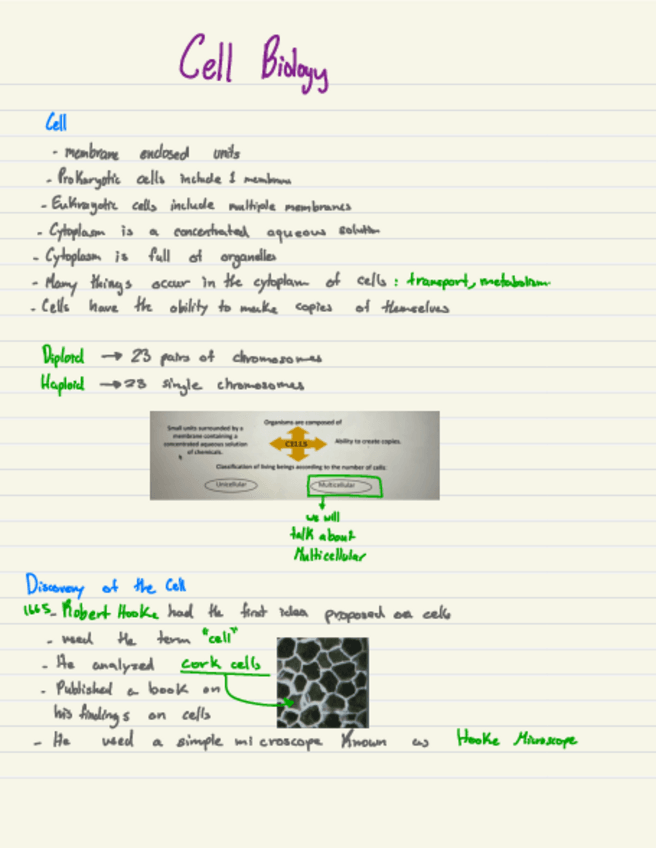 Cell Biology
Cell
- membrane enclosed units
- Prokaryotic cells include 1 membrane
- Eukrayotic cells include multiple membranes
- Cytoplasm is a concentrated aqueous solution
- Cytoplasm is full of organelles
- Many things occur in the cytoplasm of cells : transport, metabolism.
- Cells have the ability to make copies of themselves
Diploid → 23 pairs of chromosomes
Haploid → 23 single chromosomes
Small units surrounded by a
membrane containing a
concentrated aqueous solution
of chemicals.
Organisms are composed of
CELLS
Ability to create copies.
Classification of living beings according to the number of cells:
Unicellular
Multicellular
we will
talk about
Multicellular
Discovery of the Cell
1665- Robert Hooke had the first idea proposed on cells
- used the term "cell"
- He analyzed cork cells
- Published a book on
his findings on cells
- He used a simple microscope Known as Hooke Microscope